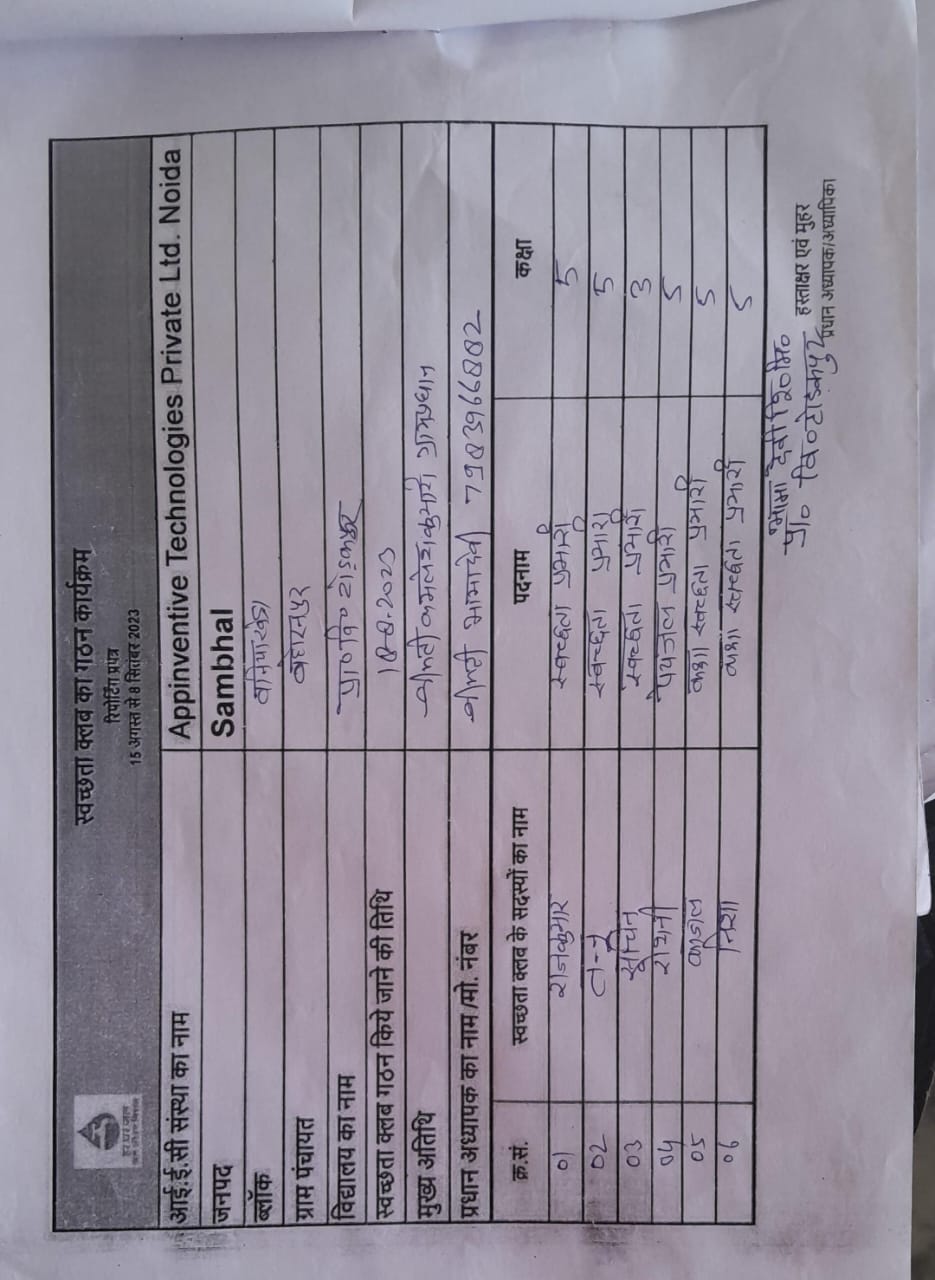 हर घर जल
स्वच्छता क्लब का गठन कार्यक्रम
रिपोर्टिंग प्रपत्र
15 अगस्त से 8 सितंबर 2023
आई.ई.सी संस्था का नाम Appinventive Technologies Private Ltd. Noida
जनपद Sambhal
ब्लॉक बनियाखेडा
ग्राम पंचायत
विद्यालय का नाम प्रा० वि०
स्वच्छता क्लब गठन किये जाने की तिथि 18-8-2023
मुख्य अतिथि श्रीमती कमलेश कुमारी ग्रामप्रधान
प्रधान अध्यापक का नाम /मो. नंबर श्रीमती भामा देवी 7983966802
क्र.सं. स्वच्छता क्लब के सदस्यों का नाम पदनाम कक्षा
01 राजकुमार स्वच्छता प्रभारी 5
02 तनु स्वच्छता प्रभारी 5
03 सचिन स्वच्छता प्रभारी 3
04 रोशनी पेयजल प्रभारी 5
05 काजल कक्षा स्वच्छता प्रभारी 5
06 निशा कक्षा स्वच्छता प्रभारी 5
भामा देवी शि०मि०
प्रा० वि०
हस्ताक्षर एवं मुहर
प्रधान अध्यापक/अध्यापिका